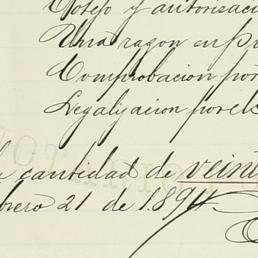 Cotejo y autorisaci
Una razon en pr
Comprobacion por
Legalizacion por el c
cantidad de veint
brero 21 de 1894.